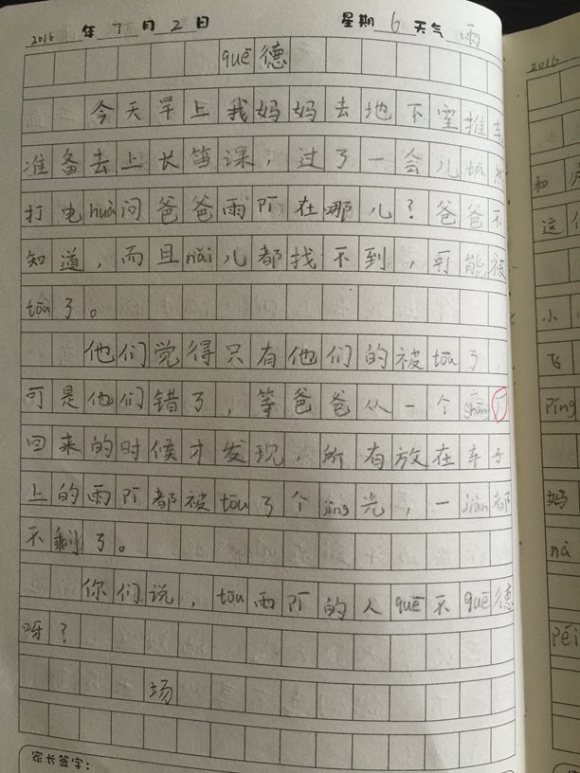 2016 年 7 月 2 日 星期 6 天气 雨
quē德
今天早上我妈妈去地下室推车
准备去上长笛课，过了一会儿
打电huà问爸爸雨阝在哪儿？爸爸不
知道，而且nǎi儿都找不到，可能被
tōu了。
他们觉得只有他们的被tōu了，
可是他们错了，等爸爸从一个
回来的时候才发现，所有放在车子
上的雨阝都被tōu了个jīng光，一jiàn都
不剩了。
你们说，tōu雨阝的人quē不quē德
呀？
场
家长签字：
2016
和
这个
小
飞
píng
妈
nà
péi